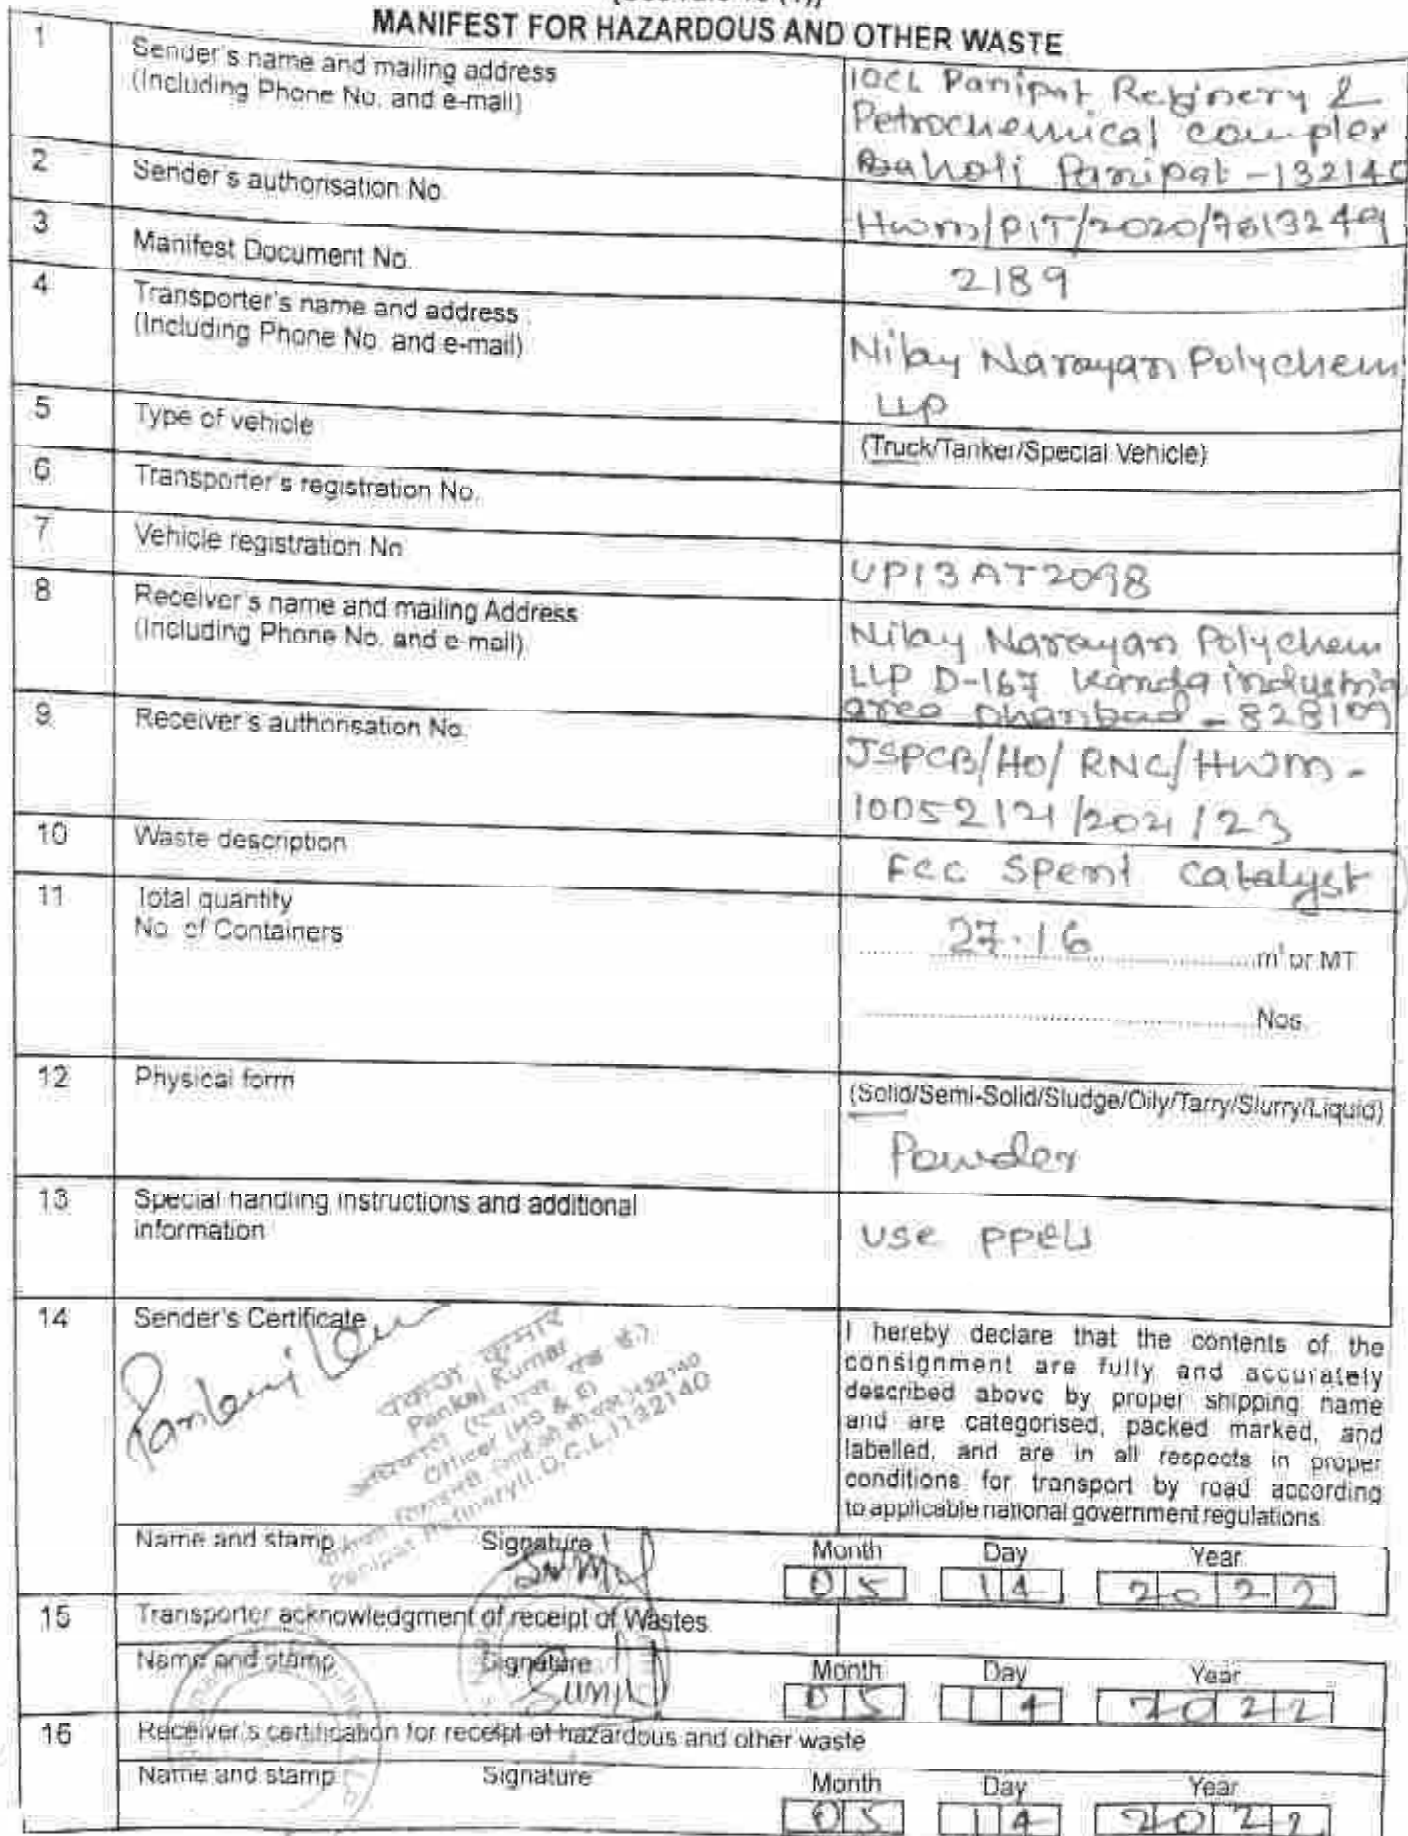 MANIFEST FOR HAZARDOUS AND OTHER WASTE
1 Sender's name and mailing address
(Including Phone No. and e-mail)
IOCL Panipat Refinery &
Petrochemical complex
Baholi Panipat - 132140
2 Sender's authorisation No.
Hwm/PIT/2020/7613249
3 Manifest Document No.
2189
4 Transporter's name and address
(Including Phone No. and e-mail)
Nilay Narayan Polychem
LLP
5 Type of vehicle
(Truck/Tanker/Special Vehicle)
6 Transporter's registration No.
7 Vehicle registration No
UP13AT2098
8 Receiver's name and mailing Address
(Including Phone No. and e-mail)
Nilay Narayan Polychem
LLP D-167 Kandra industria
area Dhanbad - 828109
9 Receiver's authorisation No.
JSPCB/HO/RNC/HWM-
10052121/2021/23
10 Waste description
Fcc Spent Catalyst
11 Total quantity
No. of Containers
27.16 m³ or MT
Nos.
12 Physical form
(Solid/Semi-Solid/Sludge/Oily/Tarry/Slurry/Liquid)
Powder
13 Special handling instructions and additional
information
use ppe's
14 Sender's Certificate
पंकज कुमार
Pankaj Kumar
Officer (HS & E)
Panipat Refinery(I.O.C.L.)132140
I hereby declare that the contents of the
consignment are fully and accurately
described above by proper shipping name
and are categorised, packed marked, and
labelled, and are in all respects in proper
conditions for transport by road according
to applicable national government regulations.
Name and stamp Signature Month Day Year
05 14 2022
15 Transporter acknowledgment of receipt of Wastes
Name and stamp Signature Month Day Year
Sunil
05 14 2022
16 Receiver's certification for receipt of hazardous and other waste
Name and stamp Signature Month Day Year
05 14 2022